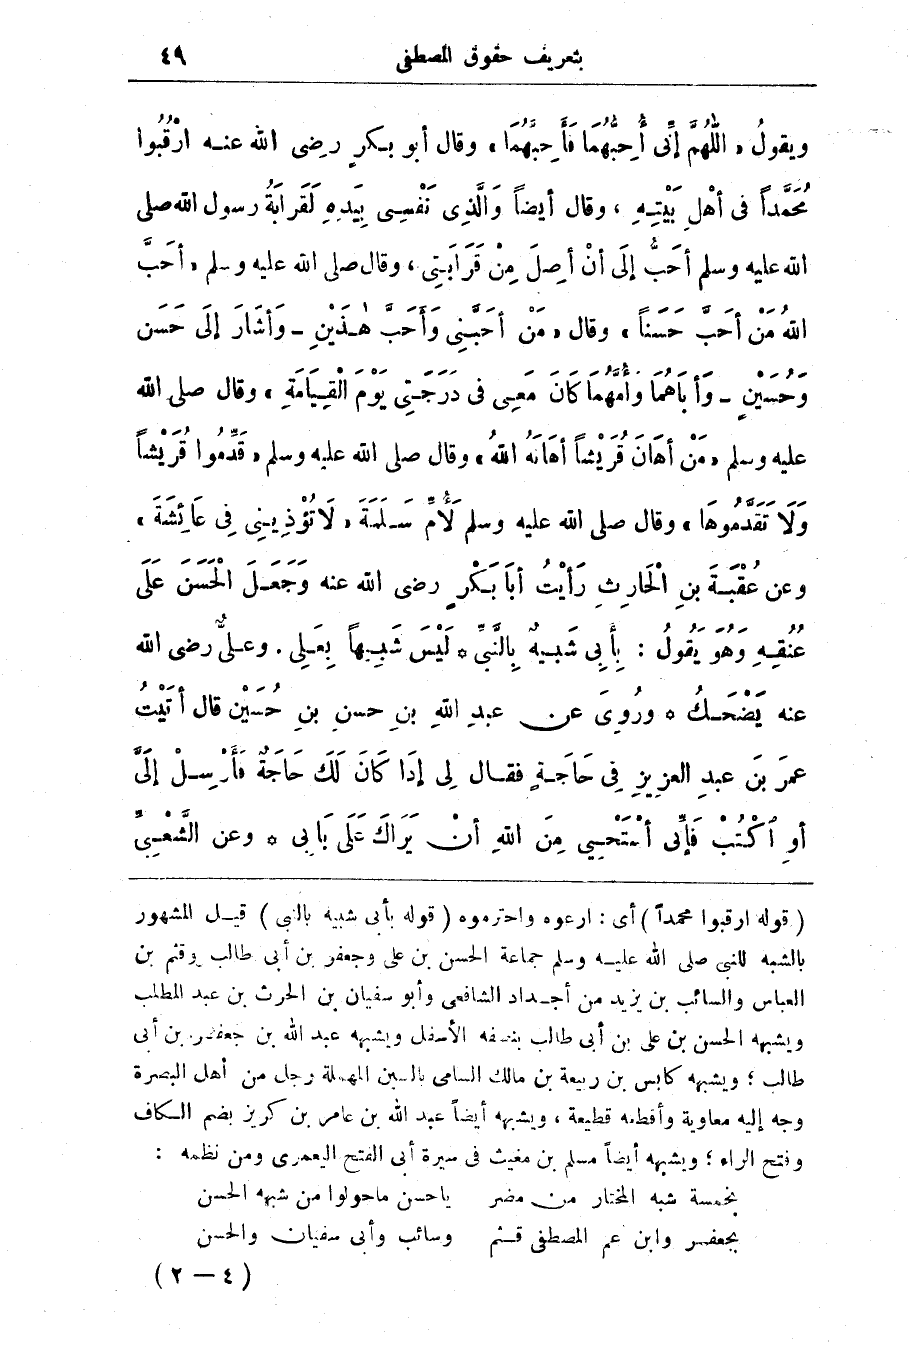 بتعريف حقوق المصطفى ٤٩
ويقولُ «اللَّهُمَّ إِنِّى أُحِبُّهُمَا فَأَحِبَّهُمَا» وقال أبو بكرٍ رضى الله عنه ارْقُبُوا
مُحَمَّداً فى أهْلِ بَيْتِهِ ، وقال أيضاً وَالَّذِى نَفْسِى بِيَدِهِ لَقَرابَةُ رسول الله صلى
الله عليه وسلم أحَبُّ إلَىَّ أنْ أصِلَ مِنْ قَرَابَتِى ، وقال صلى الله عليه وسلم «أحَبَّ
اللهُ مَنْ أحَبَّ حَسَناً» وقال «مَنْ أحَبَّنِى وَأَحَبَّ هٰذَيْنِ - وَأشَارَ إلَى حَسَن
وَحُسَيْنٍ - وَأَبَاهُمَا وَأُمَّهُمَا كَانَ مَعِى فى دَرَجَتِى يَوْمَ الْقِيَامَةِ» وقال صلى الله
عليه وسلم «مَنْ أهَانَ قُرَيْشاً أهَانَهُ اللهُ» وقال صلى الله عليه وسلم «قَدِّمُوا قُرَيْشاً
وَلَا تَقَدَّمُوهَا» وقال صلى الله عليه وسلم لأُمِّ سَلَمَةَ «لَا تُؤْذِينِى فِى عَائِشَةَ»
وعن عُقْبَةَ بنِ الْحَارِثِ رَأَيْتُ أبَا بَكْرٍ رضى الله عنه وَجَعَلَ الْحَسَنَ عَلَى
عُنُقِهِ وَهُوَ يَقُولُ : بِأَبِى شَبِيهٌ بِالنَّبِىِّ * لَيْسَ شَبِيهاً بِعَلِى . وعلىٌّ رضى الله
عنه يَضْحَكُ * ورُوِىَ عن عبدِ اللهِ بنِ حسنِ بنِ حُسَيْنٍ قال أتَيْتُ
عمرَ بنَ عبدِ العزيزِ فِى حَاجَةٍ فقال لِى إذَا كَانَ لَكَ حَاجَةٌ فَأَرْسِلْ إلَىَّ
أوِ اكْتُبْ فَإنِّى أسْتَحْيِى مِنَ اللهِ أنْ يَرَاكَ عَلَى بَابِى * وعن الشَّعْبِىِّ
( قوله ارقبوا محمداً ) أى : ارعوه واحترموه ( قوله بأبى شبيه بالنبى ) قيل المشهور
بالشبه للنبى صلى الله عليه وسلم جماعة الحسن بن على وجعفر بن أبى طالب وقثم بن
العباس والسائب بن يزيد من أجداد الشافعى وأبو سفيان بن الحرث بن عبد المطلب
ويشبهه الحسن بن على بن أبى طالب بنصفه الأسفل ويشبهه عبد الله بن جعفر بن أبى
طالب ؛ ويشبهه كابس بن ربيعة بن مالك السامى بالسين المهملة رجل من أهل البصرة
وجه إليه معاوية وأقطعه قطيعة ، ويشبهه أيضاً عبد الله بن عامر بن كريز بضم الكاف
وفتح الراء ؛ ويشبهه أيضاً مسلم بن مغيث فى سيرة أبى الفتح اليعمرى ومن نظمه :
بخمسة شبه المختار من مضر ياحسن ماحولوا من شبهه الحسن
بجعفر وابن عم المصطفى قثم وسائب وأبى سفيان والحسن
( ٤ – ٢ )